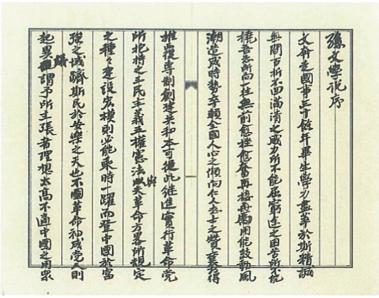 孫文學說序
文奔走國事三十餘年畢生學力盡萃於斯精誠
無間百折不回滿清之威力所不能屈窮途之困苦所不能
撓吾志所向一往無前愈挫愈奮再接再勵用能鼓動風
潮造成時勢卒賴全國人心之傾向仁人志士之贊襄乃得
推覆專制創建共和本可從此繼進實行革命黨
所抱持之三民主義五權憲法與夫革命方略所規定
之種々建設宏模則必能乘時一躍而登中國於富
強之域躋斯民於安樂之天也不圖革命初成黨人即
起異議謂予所主張者理想太高不適中國之用眾